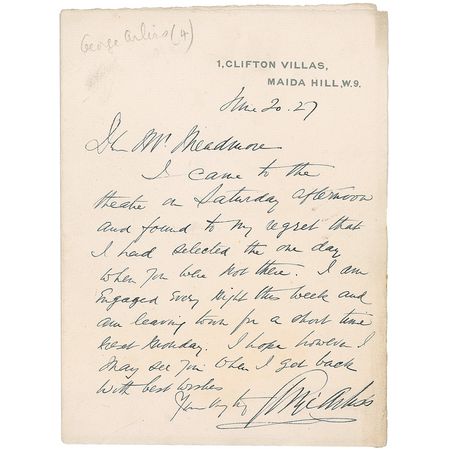 George Arliss (4)
1, CLIFTON VILLAS,
MAIDA HILL, W.9.
June 20. 27
Dear Mr. Meadmore
I came to the
theatre on Saturday afternoon
and found to my regret that
I had selected the one day
when you were not there. I am
engaged every night this week and
am leaving town for a short time
next Monday. I hope however I
may see you when I get back
With best wishes
Yours truly
George Arliss